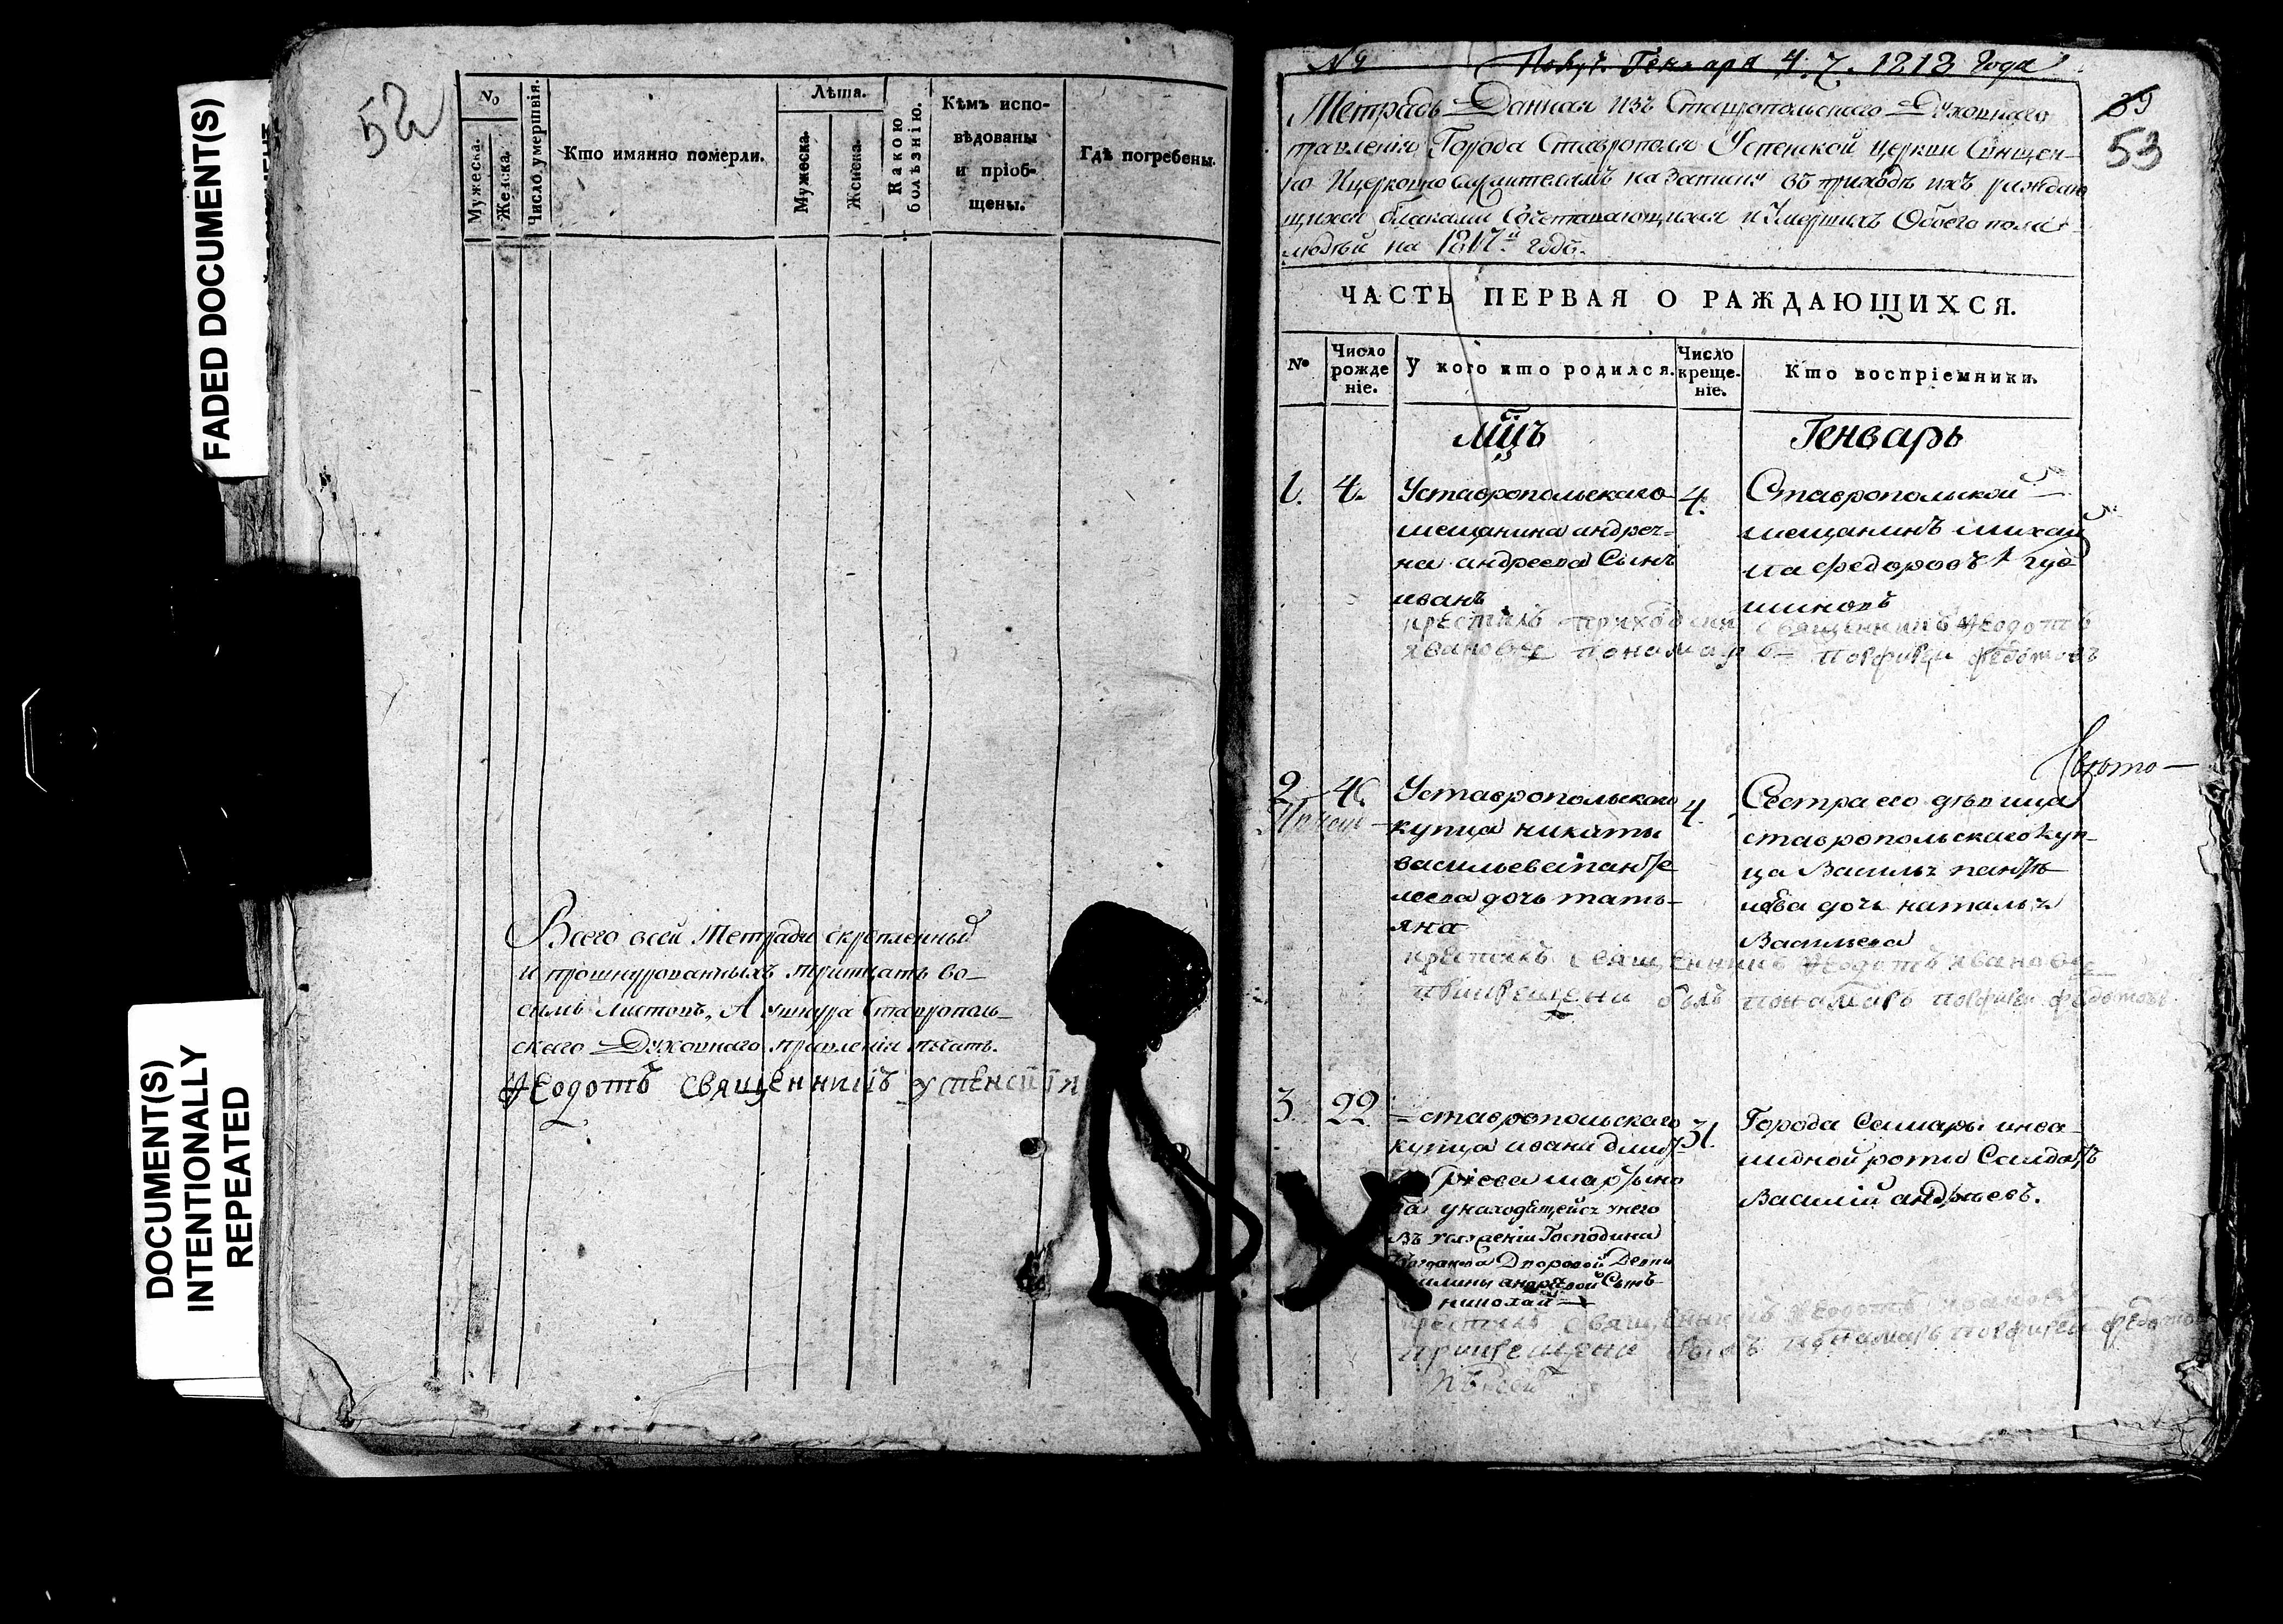 FADED DOCUMENT(S)
DOCUMENT(S)
INTENTIONALLY
REPEATED
52
№
Мужеска.
Женска.
Число умершвія.
Кто имянно померли.
Лѣта.
Мужеска.
Женска.
Какою
болѣзнію.
Кѣмъ испо-
вѣдованы
и пріоб-
щены.
Гдѣ погребены.
Всего всей Тетради скрепленный
и прошнурованныхъ тритцать во-
семь Листовъ, А у шнура Ставрополь-
скаго Духовнаго правленія печать.
Ѳеодотъ священникъ успенскія
Генваря 4. 7. 1818 Года
39
53
Тетрадь Данная изъ Ставропольскаго Духовнаго
правленія Города Ставрополя Успенской церкви Священ-
но Ицерковно служителямъ на записку въ приходѣ ихъ раждаю
щихся браками Сочетавающихся и Умершихъ Обоего пола
людей на 1817й годъ.
ЧАСТЬ ПЕРВАЯ О РАЖДАЮЩИХСЯ.
№
Число
рожде
ніе.
У кого кто родился.
Число
креще-
ніе.
Кто воспріемники.
Мцъ
Генварь
1. 4.
Уставропольскаго
мещанина андреѧ-
на андреева Сынъ
иванъ
4.
Ставропольской
мещанинъ михай
ла федоровъ
шиновъ
крестилъ приходски священникъ Ѳеодотъ
Ивановъ понамарь порфирей федотовъ
2 4.
Уставропольскаго
купца никиты
васильева панте
леева дочь тать-
яна
4.
Сестра его дѣвица
ставропольскаго куп-
ца Василья пантѣ
лѣва дочь наталья
Васильева
крестилъ священникъ Ѳеодотъ Ивановъ
прикрещени былъ понамарь порфирей федотовъ
3. 22
ставропольскаго
купца ивана дмит
ріева мартыно
ва у находящейся у него
въ услуженіи Господина
Дворовой Девки
андреевой Сынъ
николай
31.
Города Самары инва-
лидной роты Салдатъ
Василій андрѣевъ.
крестилъ священникъ Ѳеодотъ Ивановъ
прикрещени былъ понамарь порфирей федотовъ